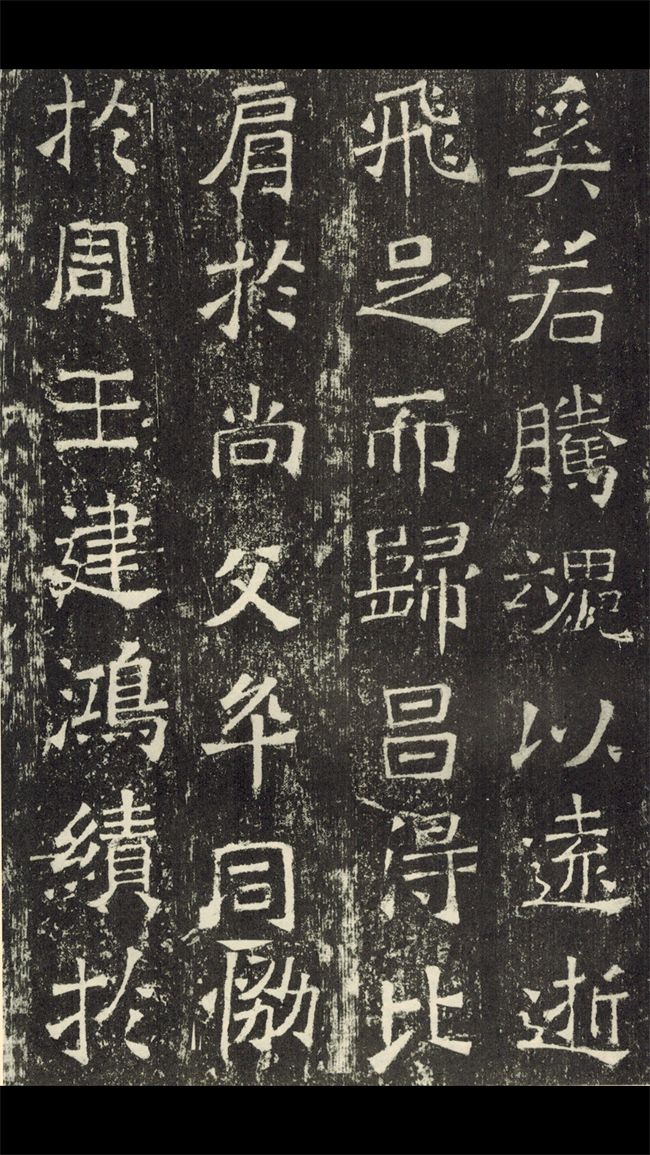 奚若騰魂以遠逝
飛足而歸昌得比
肩於尚父卒同恊
於周王建鴻績於